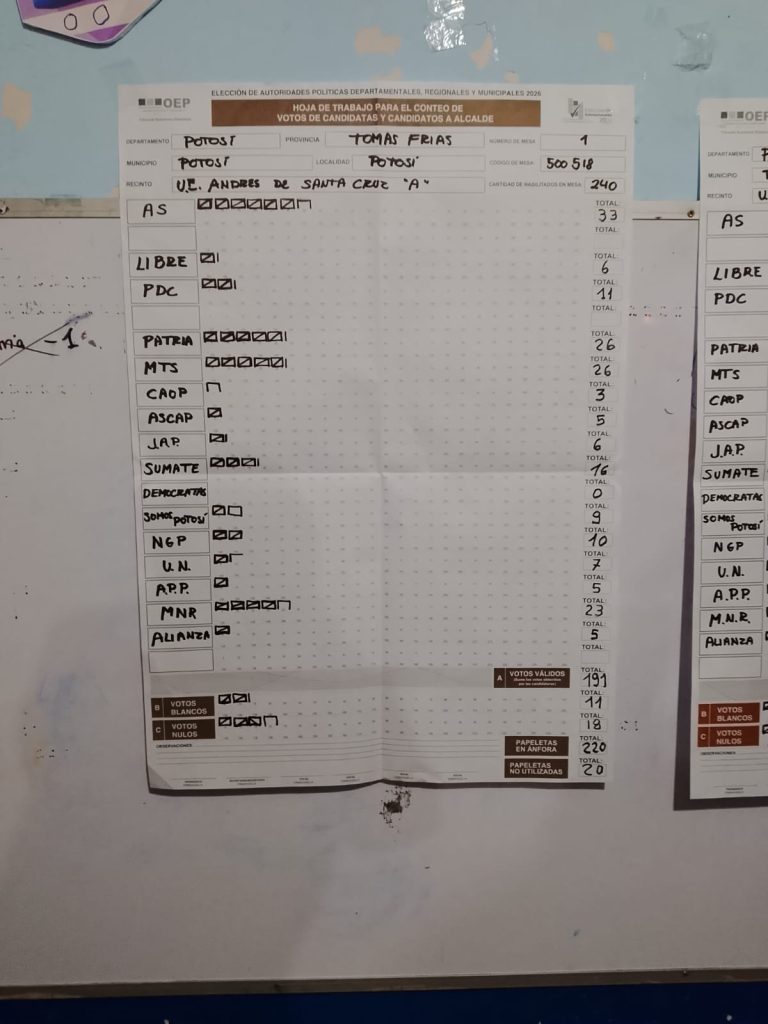 ELECCIÓN DE AUTORIDADES POLÍTICAS DEPARTAMENTALES, REGIONALES Y MUNICIPALES 2026
OEP
HOJA DE TRABAJO PARA EL CONTEO DE
VOTOS DE CANDIDATAS Y CANDIDATOS A ALCALDE
DEPARTAMENTO POTOSÍ PROVINCIA TOMAS FRIAS NÚMERO DE MESA 1
MUNICIPIO POTOSÍ LOCALIDAD POTOSÍ CÓDIGO DE MESA 500518
RECINTO U.E. ANDRES DE SANTA CRUZ "A" CANTIDAD DE HABILITADOS EN MESA 240
AS TOTAL: 33
TOTAL:
LIBRE TOTAL: 6
PDC TOTAL: 11
TOTAL:
PATRIA TOTAL: 26
MTS TOTAL: 26
CAOP TOTAL: 3
ASCAP TOTAL: 5
J.A.P. TOTAL: 6
SUMATE TOTAL: 16
DEMOCRATAS TOTAL: 0
SOMOS POTOSÍ TOTAL: 9
NGP TOTAL: 10
U.N. TOTAL: 7
A.P.P. TOTAL: 5
MNR TOTAL: 23
ALIANZA TOTAL: 5
TOTAL:
A VOTOS VÁLIDOS TOTAL: 191
B VOTOS BLANCOS TOTAL: 11
C VOTOS NULOS TOTAL: 18
OBSERVACIONES
PAPELETAS EN ÁNFORA TOTAL: 220
PAPELETAS NO UTILIZADAS TOTAL: 20
-1
OEP
DEPARTAMENTO
MUNICIPIO
RECINTO
AS
LIBRE
PDC
PATRIA
MTS
CAOP
ASCAP
J.A.P.
SUMATE
DEMOCRATAS
SOMOS POTOSÍ
NGP
U.N.
A.P.P.
M.N.R.
ALIANZA
B VOTOS BLANCOS
C VOTOS NULOS
OBSERVACIONES